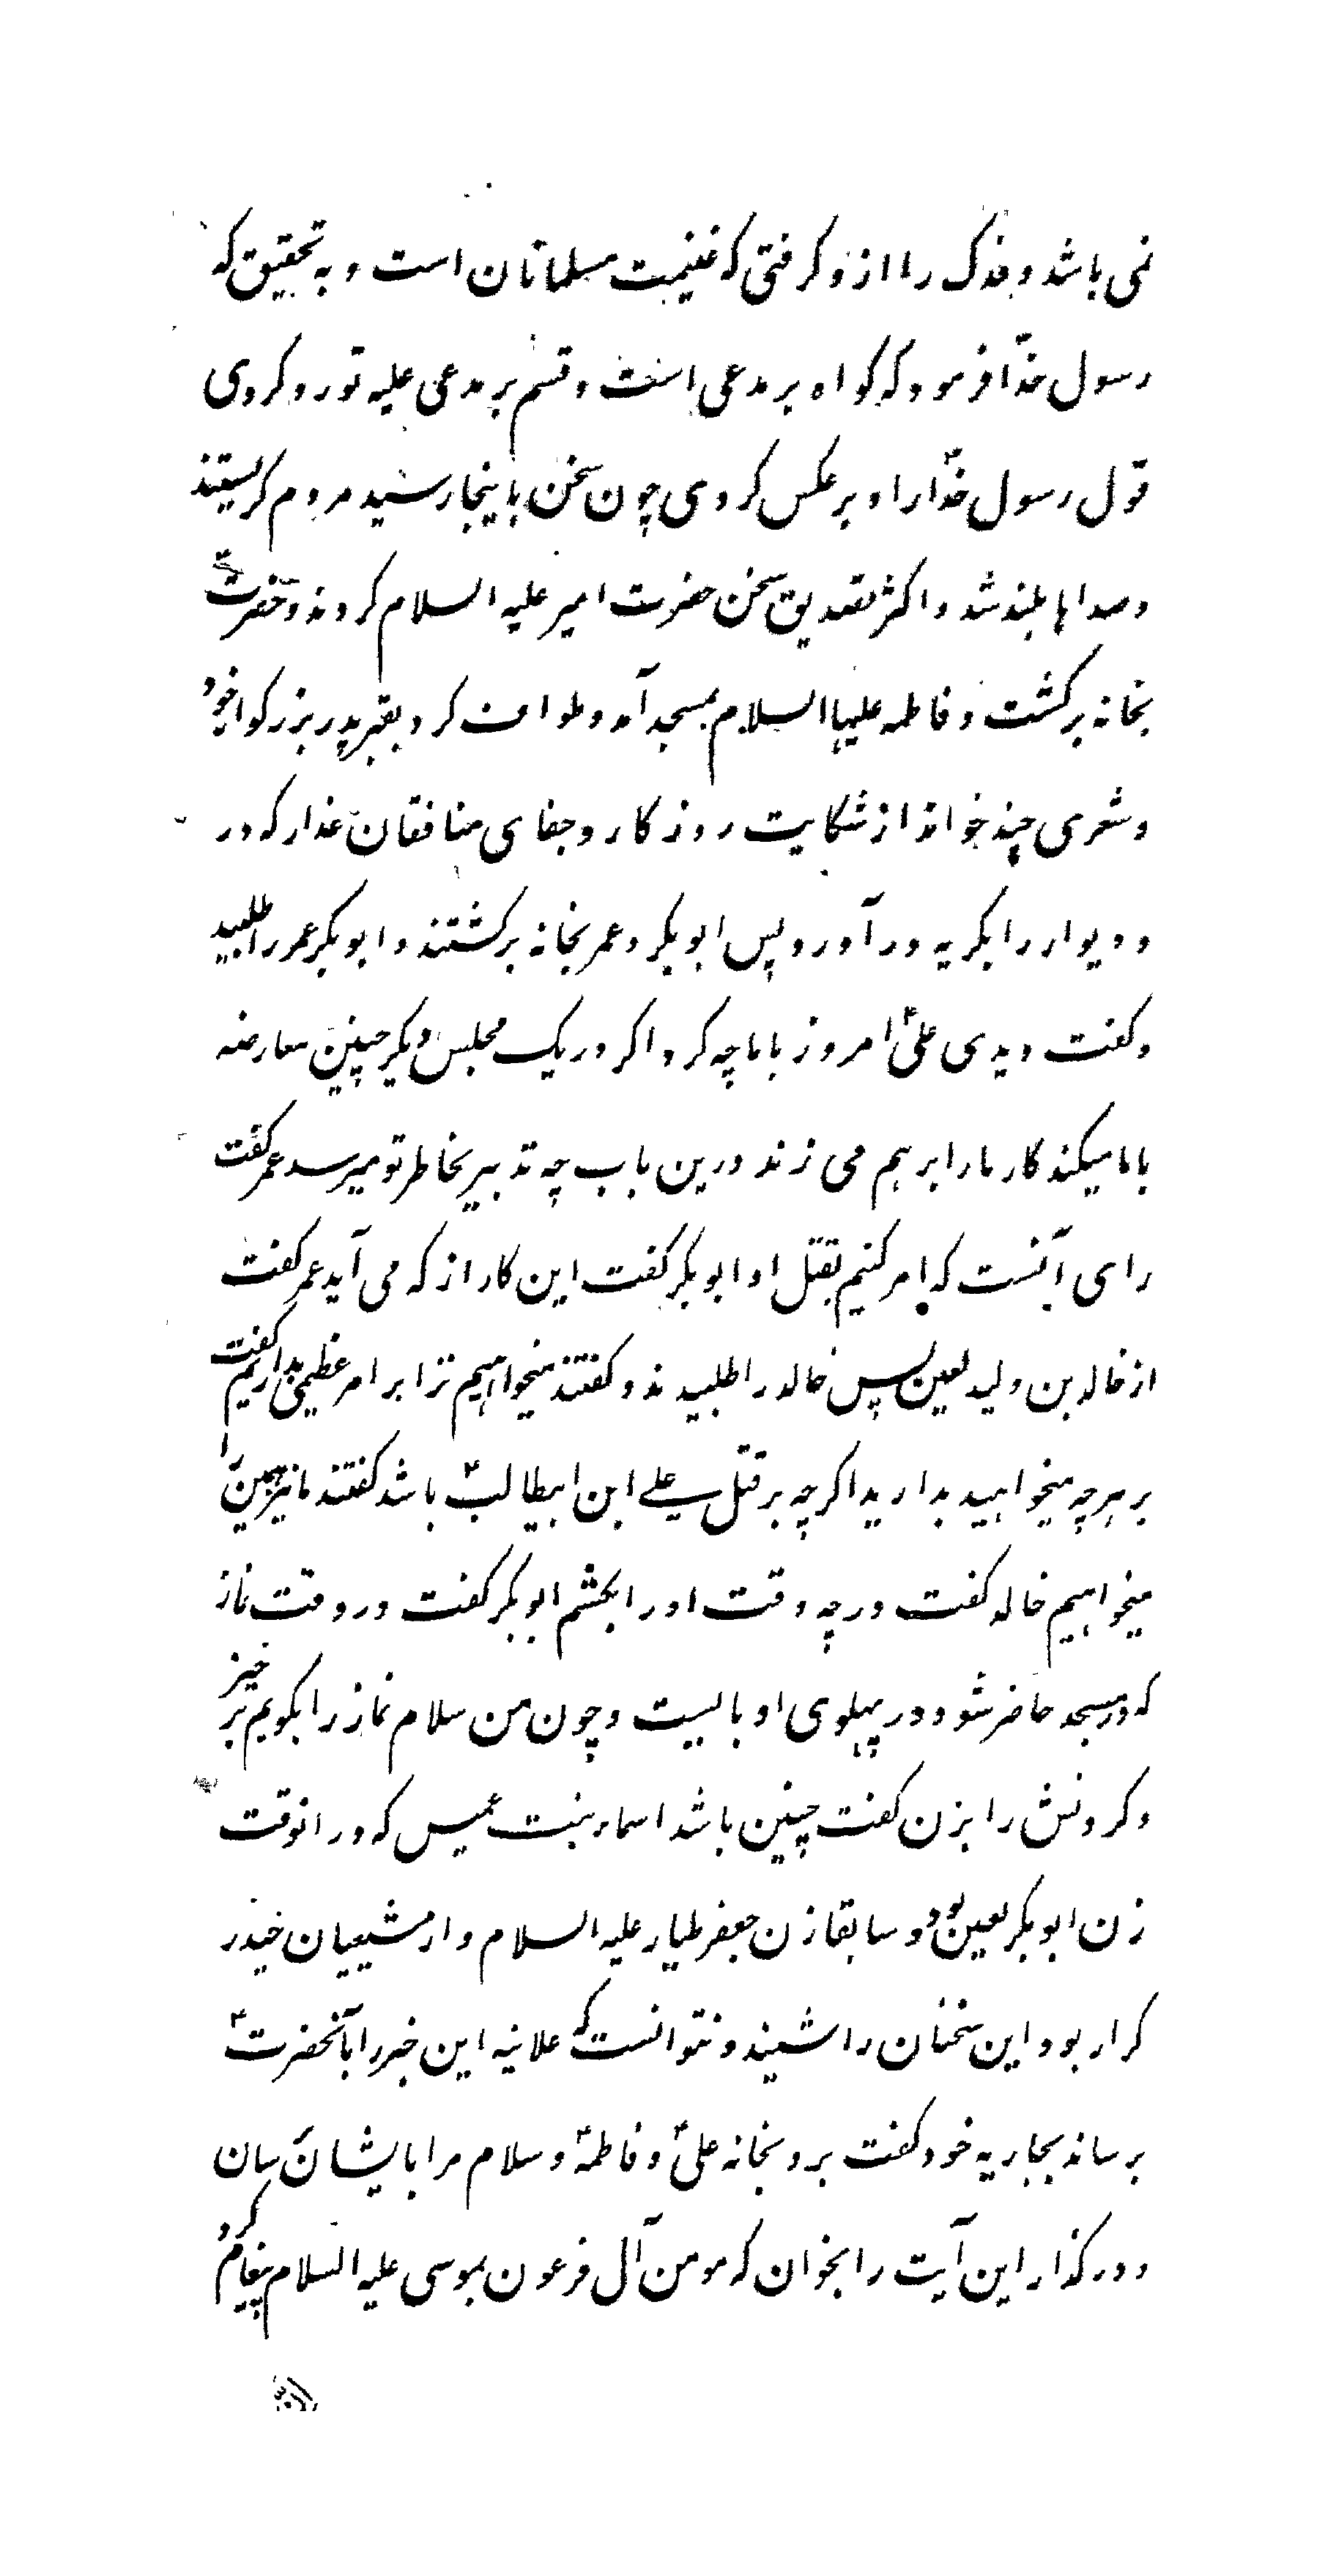 نمی باشد و فدک را از و کرفتی که غنیمت مسلمانان است و به تحقیق که
رسول خدا فرمود که کواه بر مدعی است و قسم بر مدعی علیه تو رد کردی
قول رسول خدا را و بر عکس کردی چون سخن باینجا رسید مردم کریستند
و صداها بلند شد و اکثر تصدیق سخن حضرت امیر علیه السلام کردند و حضرت
بخانه برکشت و فاطمه علیها السلام بمسجد آمد و طواف کرد بقبر پدر بزرکوار خود
و شعری چند خواند از شکایت روزکار و جفای منافقان غدار که در
و دیوار را بکریه در آورد پس ابوبکر و عمر بخانه برکشتند و ابوبکر عمر را طلبید
و کفت دیدی علی امروز باما چه کرد اکر در یک مجلس دیکر چنین معارضه
باما میکند کار مارا برهم می زند درین باب چه تدبیر بخاطر تو میرسد عمر کفت
رای آنست که امر کنیم بقتل او ابوبکر کفت این کار از که می آید عمر کفت
از خالد بن ولید لعین پس خالد را طلبیدند و کفتند میخواهیم ترا بر امر عظیمی بداریم کفت
بر هرچه میخواهید بدارید اکرچه بر قتل علی ابن ابیطالب باشد کفتند ما نیز همین را
میخواهیم خالد کفت در چه وقت اورا بکشم ابوبکر کفت در وقت نماز
که در مسجد حاضر شود در پهلوی او بایست و چون من سلام نماز را بکویم بر خیز
و کردنش را بزن کفت چنین باشد اسماء بنت عمیس که در انوقت
زن ابوبکر لعین بود و سابقا زن جعفر طیار علیه السلام و از شیعیان حیدر
کرار بود این سخنان را شنید و نتوانست که علانیه این خبر را بآنحضرت
برساند بجاریه خود کفت برو بخانه علی و فاطمه و سلام مرا بایشان برسان
و در کذار این آیت را بخوان که مومن آل فرعون بموسی علیه السلام پیغام کرد